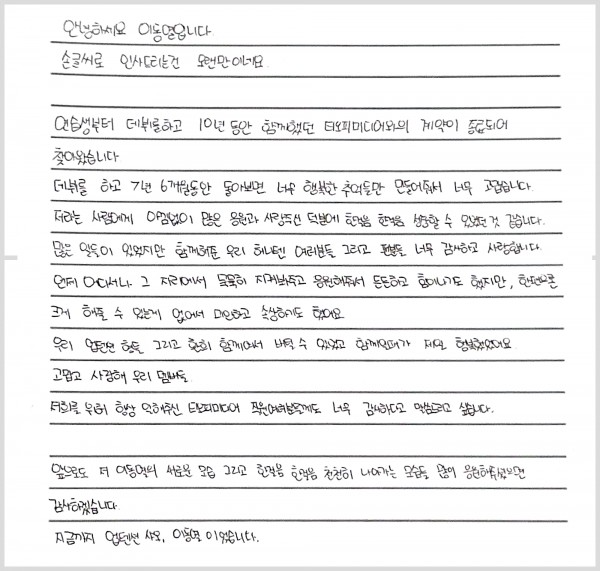 안녕하세요 이동열입니다.
손글씨로 인사드리는건 오랜만이네요.
연습생부터 데뷔를하고 10년 동안 함께했던 티오피미디어와의 계약이 종료되어
찾아왔습니다
데뷔를 하고 7년 6개월동안 돌아보면 너무 행복한 추억들만 만들어줘서 너무 고맙습니다.
저라는 사람에게 아낌없이 많은 응원과 사랑주신 덕분에 한걸음 한걸음 성장할 수 있었던 것 같습니다.
많은 일들이 있었지만 함께해준 우리 허니텐 여러분들 그리고 팬분들 너무 감사하고 사랑합니다.
언제 어디서나 그 자리에서 묵묵히 지켜봐주고 응원해줘서 든든하고 힘이나기도 했지만, 한편으론
크게 해줄 수 있는게 없어서 미안하고 속상하기도 했어요
우리 업텐션 형들 그리고 환희 함께여서 버틸 수 있었고 함께인때가 제일 행복했었어요
고맙고 사랑해 우리 멤버들
저희를 위해 항상 일해주신 티오피미디어 직원여러분들께도 너무 감사하다고 말씀드리고 싶습니다.
앞으로도 저 이동열의 새로운 모습 그리고 한걸음 한걸음 천천히 나아가는 모습들 많이 응원해주셨으면
감사하겠습니다
지금까지 업텐션 샤오, 이동열 이었습니다.